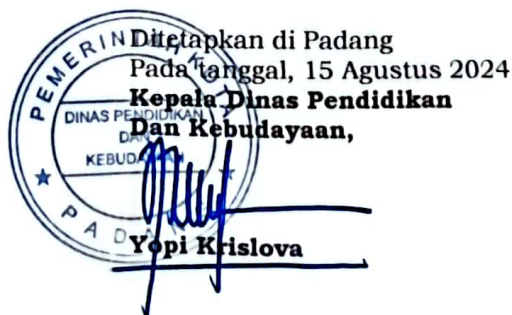 Ditetapkan di Padang
Pada tanggal, 15 Agustus 2024
Kepala Dinas Pendidikan
Dan Kebudayaan,
Yopi Krislova
PEMERINTAH KOTA
DINAS PENDIDIKAN
DAN
KEBUDAYAAN
PADANG